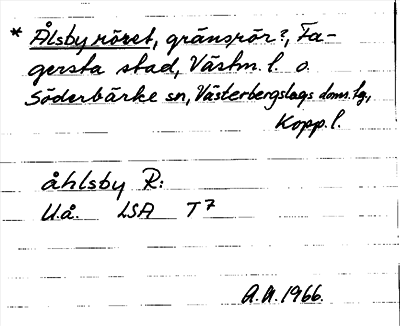 * Ålsby röret, gränsrör?, Fa-
gersta stad, Västm. l. o.
Söderbärke sn, Västerbergslags doms. tg,
Kopp. l.
åhlsby R:
U.å. LSA T7
A.N. 1966.